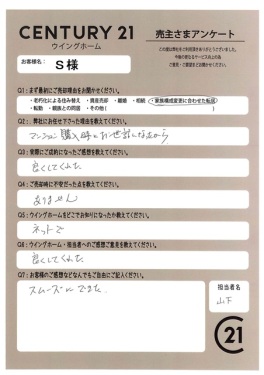 CENTURY 21
ウイングホーム
売主さまアンケート
この度は弊社をご利用頂きありがとうございました。
今後の更なるサービス向上の為
ご意見・ご要望をお聞かせください。
お客様名：
S様
Q1：まず最初にご売却理由をお聞かせください。
・老朽化による住み替え ・資産売却 ・離婚 ・相続 ・家族構成変更に合わせた転居
・転勤 ・親族との同居 ・その他( )
Q2：弊社にお任せ下さった理由を教えてください。
マンション購入時にお世話になったから
Q3：実際にご成約になったご感想を教えてください。
良くしてくれた
Q4：ご売却時に不安だった点を教えてください。
ありません
Q5：ウイングホームをどこでお知りになったか教えてください。
ネットで
Q6：ウイングホーム・担当者へのご感想ご意見を教えてください。
良くしてくれた
Q7：お客様のご感想などなんでもご自由にご記入ください。
スムーズにできた。
担当者名
山下
C21